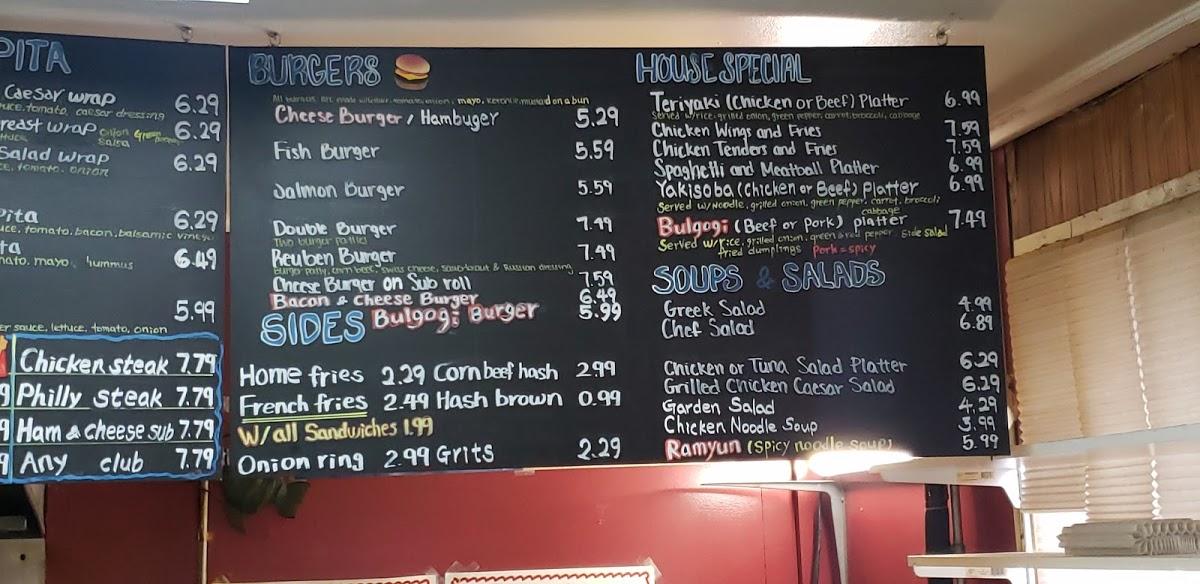 PITA
Caesar wrap 6.29
uce, tomato, caesar dressing
reast wrap onion Green 6.29
salsa
Salad wrap 6.29
ce, tomato, onion
Pita 6.29
uce, tomato, bacon, balsamic
ta 6.49
mato, mayo, hummus
5.99
er sauce, lettuce, tomato, onion
Chicken steak 7.79
9 Philly steak 7.79
9 Ham & cheese sub 7.79
9 Any club 7.79
BURGERS
mayo, on a bun
Cheese Burger / Hambuger 5.29
Fish Burger 5.59
Salmon Burger 5.59
Double Burger 7.49
Two burger patties
Reuben Burger 7.49
burger patty, corn beef, swiss cheese, & Russian dressing
Cheese Burger on Sub roll 7.59
Bacon & Cheese Burger 6.49
Bulgogi Burger 5.99
SIDES
Home fries 2.29 Corn beef hash 2.99
French fries 2.49 Hash brown 0.99
W/all Sandwiches 1.99
Onion ring 2.99 Grits 2.29
HOUSE SPECIAL
Teriyaki (Chicken or Beef) Platter 6.99
Served w/rice, grilled onion, green pepper, carrot, broccoli, cabbage
Chicken Wings and Fries 7.59
Chicken Tenders and Fries 7.59
Spaghetti and Meatball Platter 6.99
Yakisoba (Chicken or Beef) Platter 6.99
Served w/Noodle, grilled onion, green pepper, carrot, broccoli
cabbage
Bulgogi (Beef or Pork) platter 7.49
Served w/rice, grilled onion, green & red pepper, side salad
fried dumplings Pork=spicy
SOUPS & SALADS
Greek Salad 4.99
Chef Salad 6.89
Chicken or Tuna Salad Platter 6.29
Grilled Chicken Caesar Salad 6.29
Garden Salad 4.29
Chicken Noodle Soup 3.99
Ramyun (Spicy noodle soup) 5.99